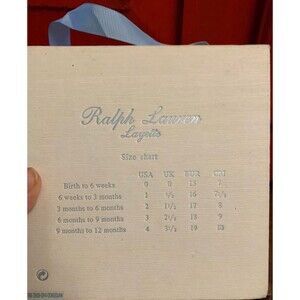 Ralph Lauren
Layette
Size chart
USA UK EUR CM
Birth to 6 weeks 0 0 15 7
6 weeks to 3 months 1 ½ 16 7½
3 months to 6 months 2 1½ 17 8
6 months to 9 months 3 2½ 18 9
9 months to 12 months 4 3½ 19 10